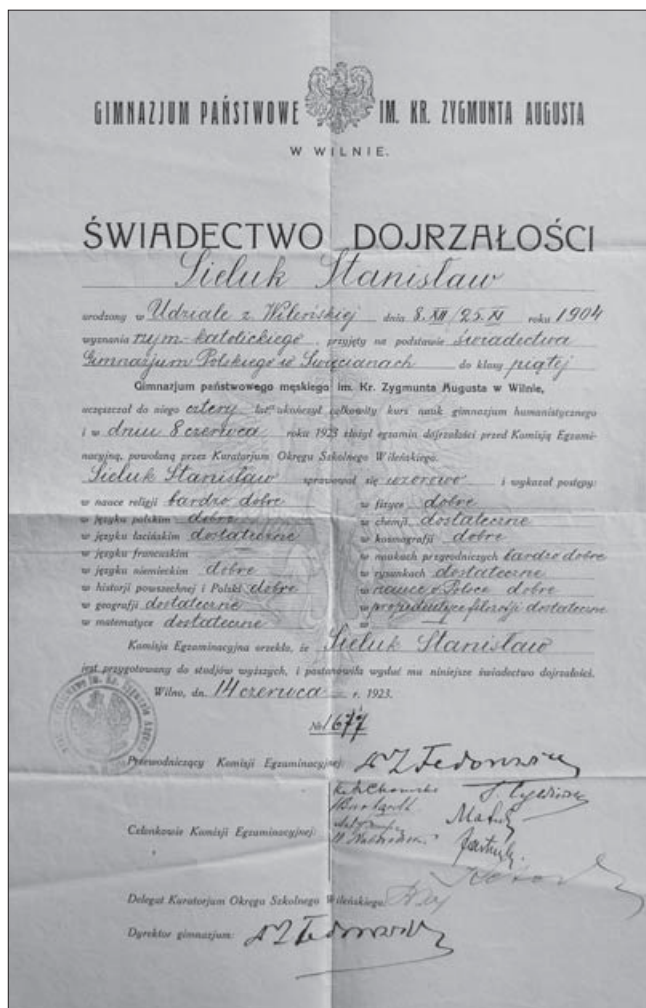 GIMNAZJUM PAŃSTWOWE IM. KR. ZYGMUNTA AUGUSTA
W WILNIE.
ŚWIADECTWO DOJRZAŁOŚCI
Sieluk Stanisław
urodzony w Udziale z. Wileńskiej dnia 8.XII/25.XI roku 1904
wyznania rzym-katolickiego, przyjęty na podstawie świadectwa
Gimnazjum Polskiego w Święcianach do klasy piątej
Gimnazjum państwowego męskiego im. Kr. Zygmunta Augusta w Wilnie,
uczęszczał do niego cztery lat, ukończył całkowity kurs nauk gimnazjum humanistycznego
i w dniu 8 czerwca roku 1923 złożył egzamin dojrzałości przed Komisją Egzami-
nacyjną, powołaną przez Kuratorjum Okręgu Szkolnego Wileńskiego.
Sieluk Stanisław sprawował się wzorowo i wykazał postępy:
w nauce religji bardzo dobre w fizyce dobre
w języku polskim dobre w chemji dostateczne
w języku łacińskim dostateczne w kosmografji dobre
w języku francuskim w naukach przyrodniczych bardzo dobre
w języku niemieckim dobre w rysunkach dostateczne
w historji powszechnej i Polski dobre w nauce o Polsce dobre
w geografji dostateczne w propedeutyce filozofji dostateczne
w matematyce dostateczne w
Komisja Egzaminacyjna orzekła, że Sieluk Stanisław
jest przygotowany do studjów wyższych, i postanowiła wydać mu niniejsze świadectwo dojrzałości.
Wilno, dn. 14 czerwca r. 1923.
№ 677
Przewodniczący Komisji Egzaminacyjnej:
Członkowie Komisji Egzaminacyjnej:
Delegat Kuratorjum Okręgu Szkolnego Wileńskiego:
Dyrektor gimnazjum: